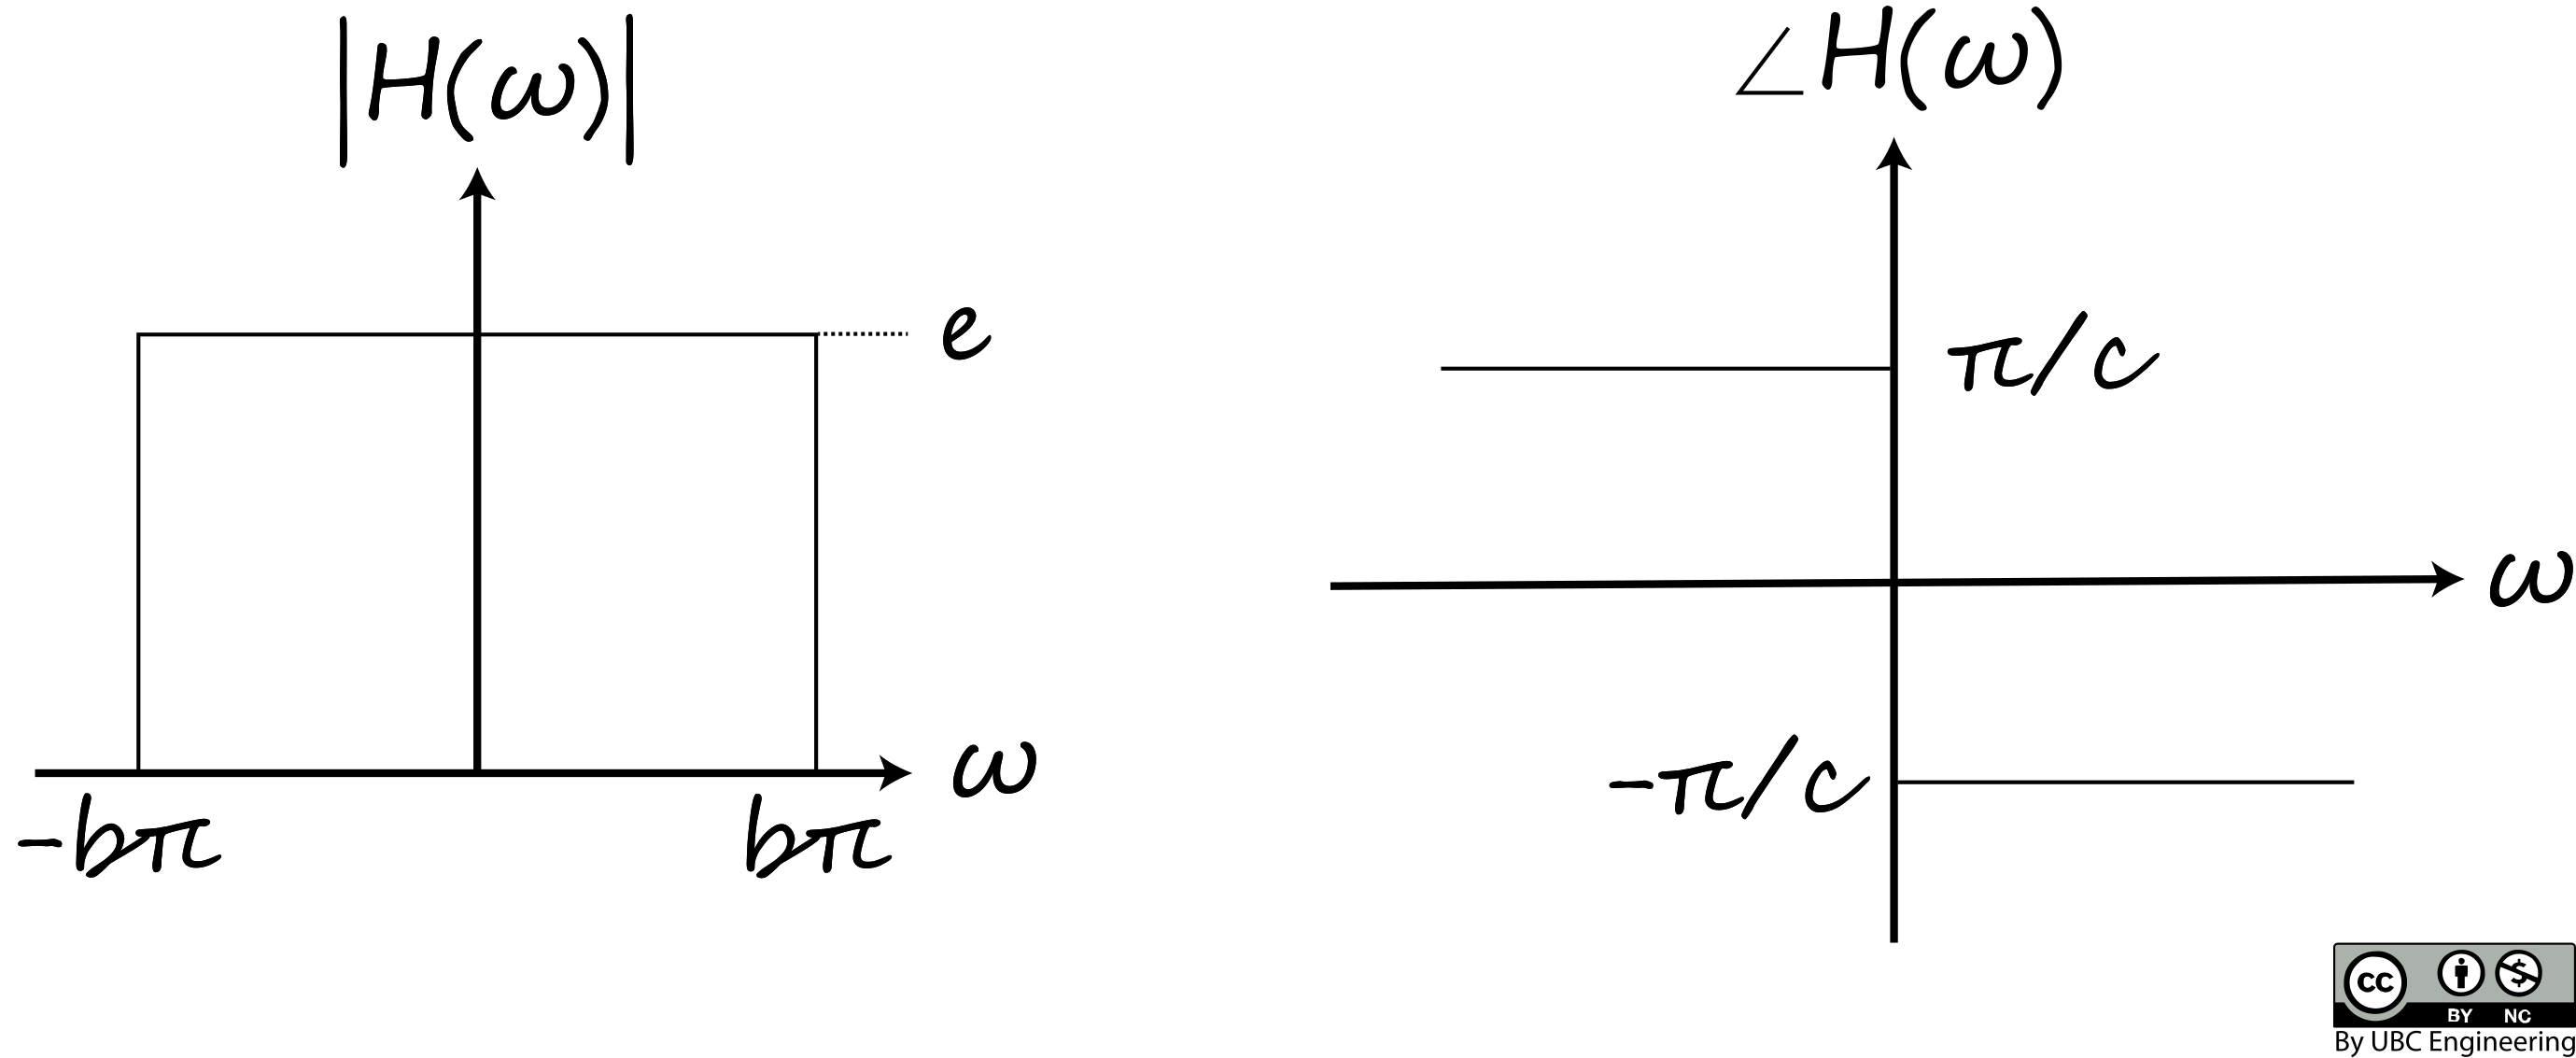 |H(ω)|
e
ω
-bπ
bπ
∠H(ω)
π/c
ω
-π/c
cc
BY NC
By UBC Engineering